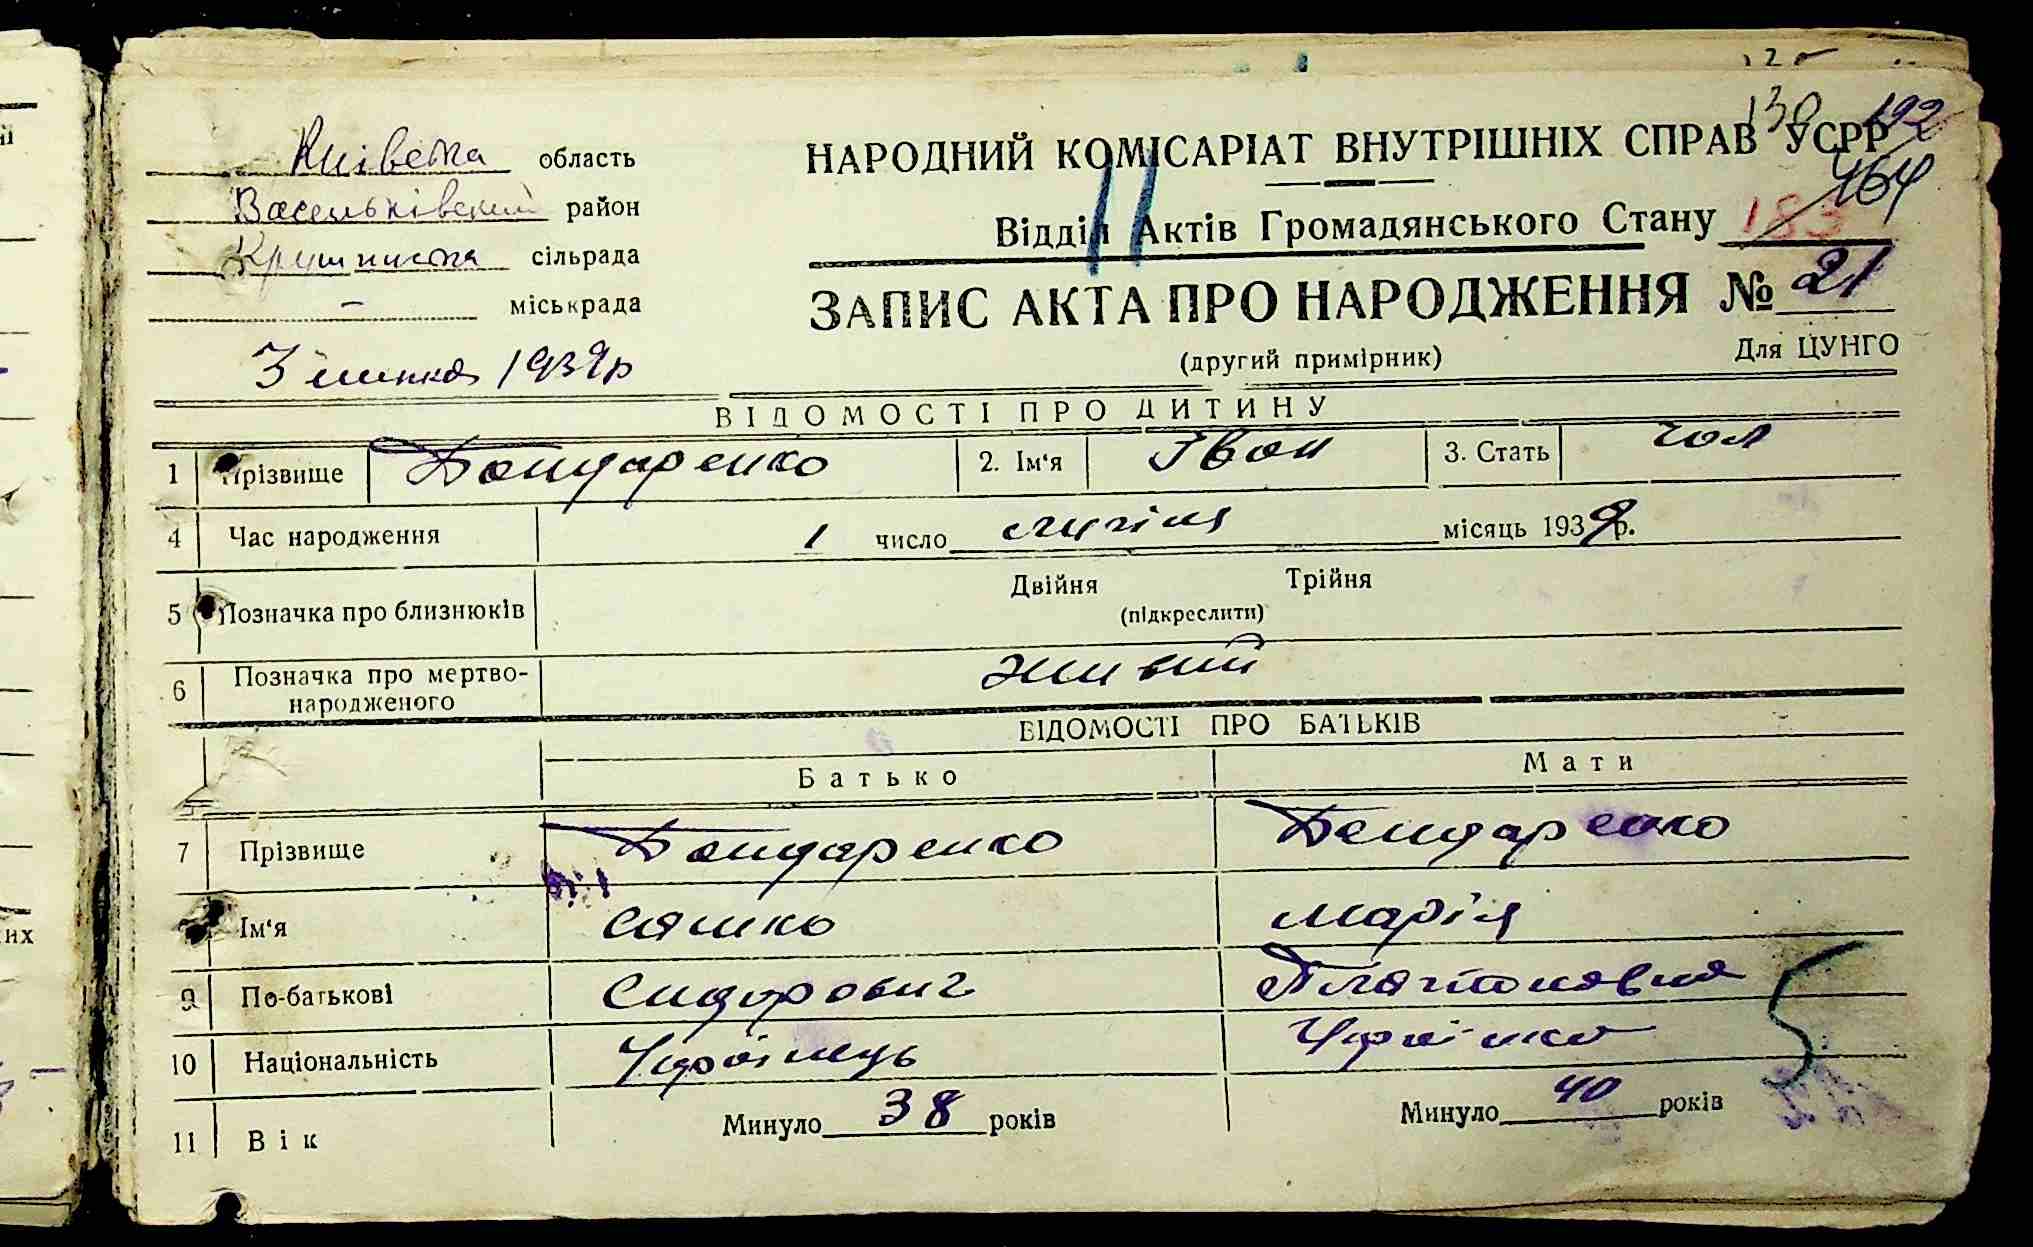 130 192
Київська область НАРОДНИЙ КОМІСАРІАТ ВНУТРІШНІХ СПРАВ УСРР
164
Васильківський район Відділ Актів Громадянського Стану 183
11
сільрада
– міськрада ЗАПИС АКТА ПРО НАРОДЖЕННЯ № 21
(другий примірник) Для ЦУНГО
3 липня 1939 р
ВІДОМОСТІ ПРО ДИТИНУ
1 Прізвище Бондаренко 2. Ім'я Іван 3. Стать чол
4 Час народження 1 число місяць 1939 р.
5 Позначка про близнюків Двійня Трійня
(підкреслити)
6 Позначка про мертво-
народженого живий
ВІДОМОСТІ ПРО БАТЬКІВ
Батько Мати
7 Прізвище Бондаренко Бондаренко
Ім'я Сашко Марія
9 По-батькові Сидорович Платоновна
10 Національність Українець Українка
11 Вік Минуло 38 років Минуло 40 років
их